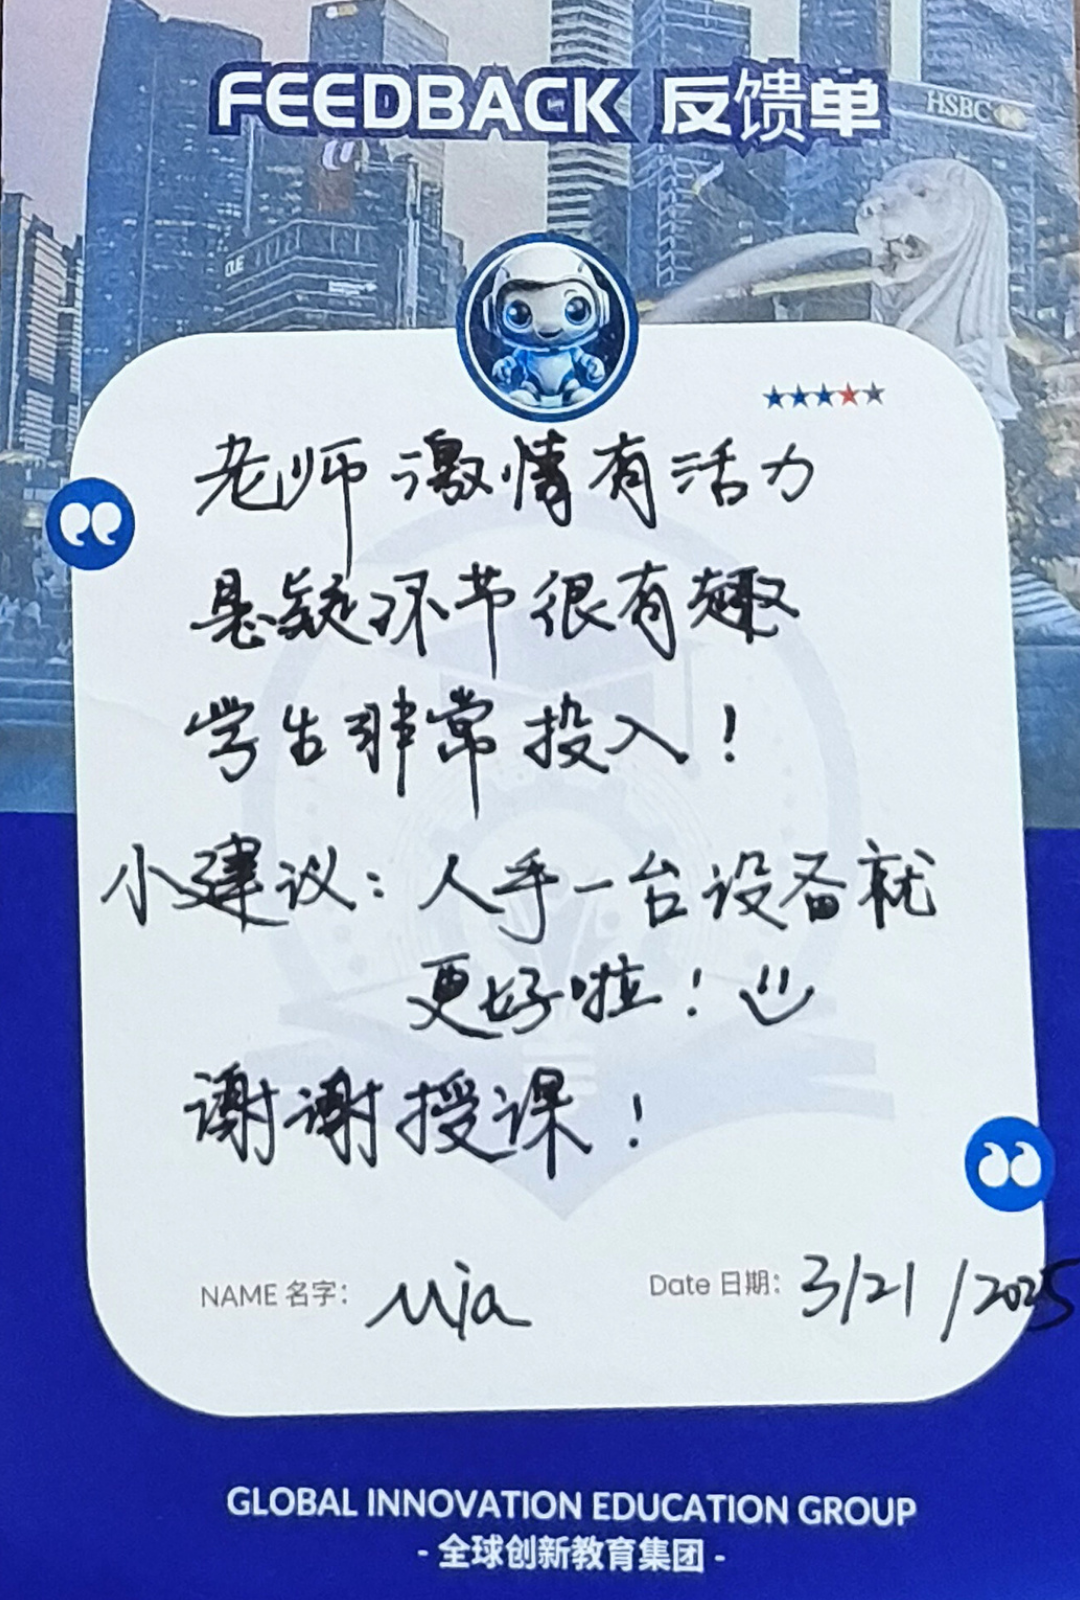 FEEDBACK 反馈单
HSBC
OUE
老师激情有活力
悬疑环节很有趣
学生非常投入！
小建议：人手一台设备就
更好啦！
谢谢授课！
NAME 名字： Mia
Date 日期： 3/21/2025
GLOBAL INNOVATION EDUCATION GROUP
- 全球创新教育集团 -